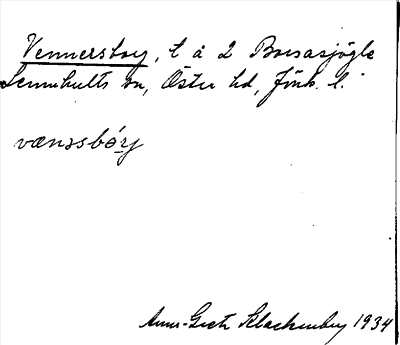 Vennersborg, t å 2 Borsasjögle
Lemnhults sn, Östra hd, Jönk. l.
vænssbórj
Anna-Greta Klackenberg 1934